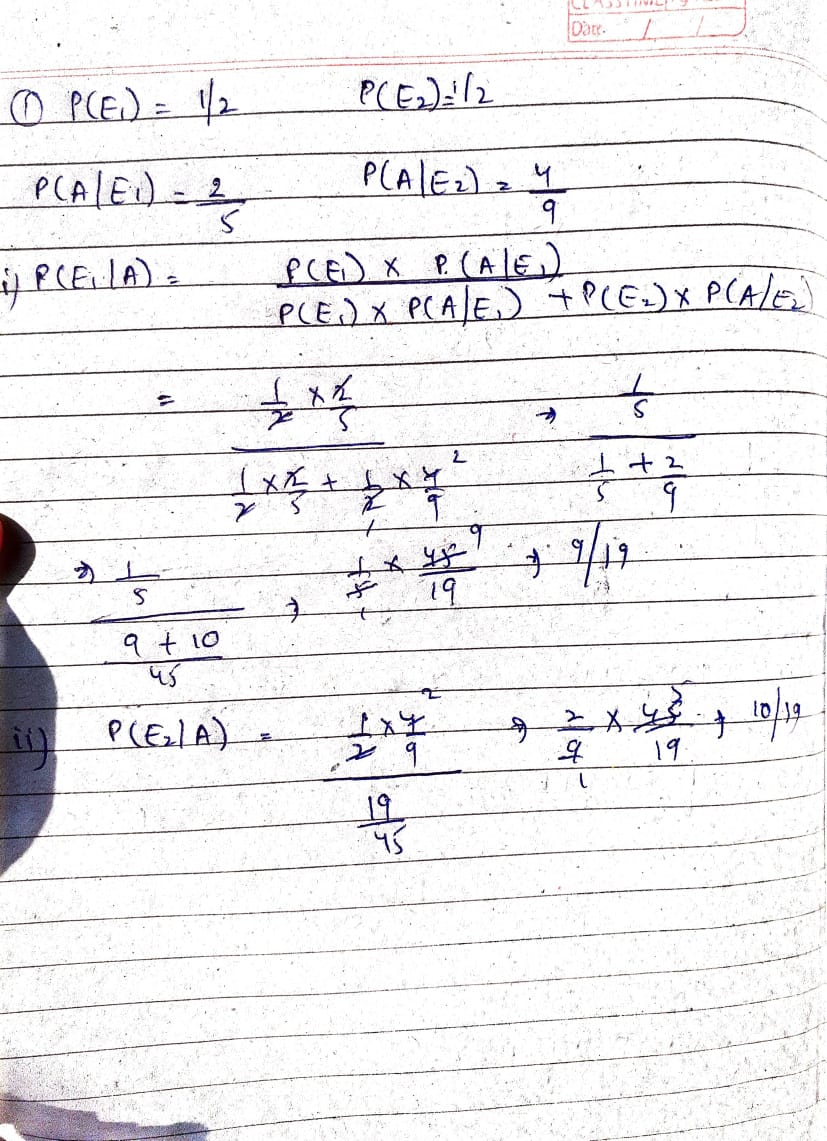 Date. / /
① P(E₁) = 1/2 P(E₂)=1/2
P(A/E₁) = 2/5 P(A/E₂) = 4/9
i) P(E₁/A) = P(E₁) × P.(A/E₁) / P(E₁) × P(A/E₁) + P(E₂) × P(A/E₂)
= 1/2 × 2/5 / 1/2 × 2/5 + 1/2 × 4/9 → 1/5 / 1/5 + 2/9
⇒ 1/5 / 9 + 10/45 ⇒ 1/5 × 45/19 ⇒ 9/19
ii) P(E₂/A) = 1/2 × 4/9 / 19/45 ⇒ 2/9 × 45/19 ⇒ 10/19